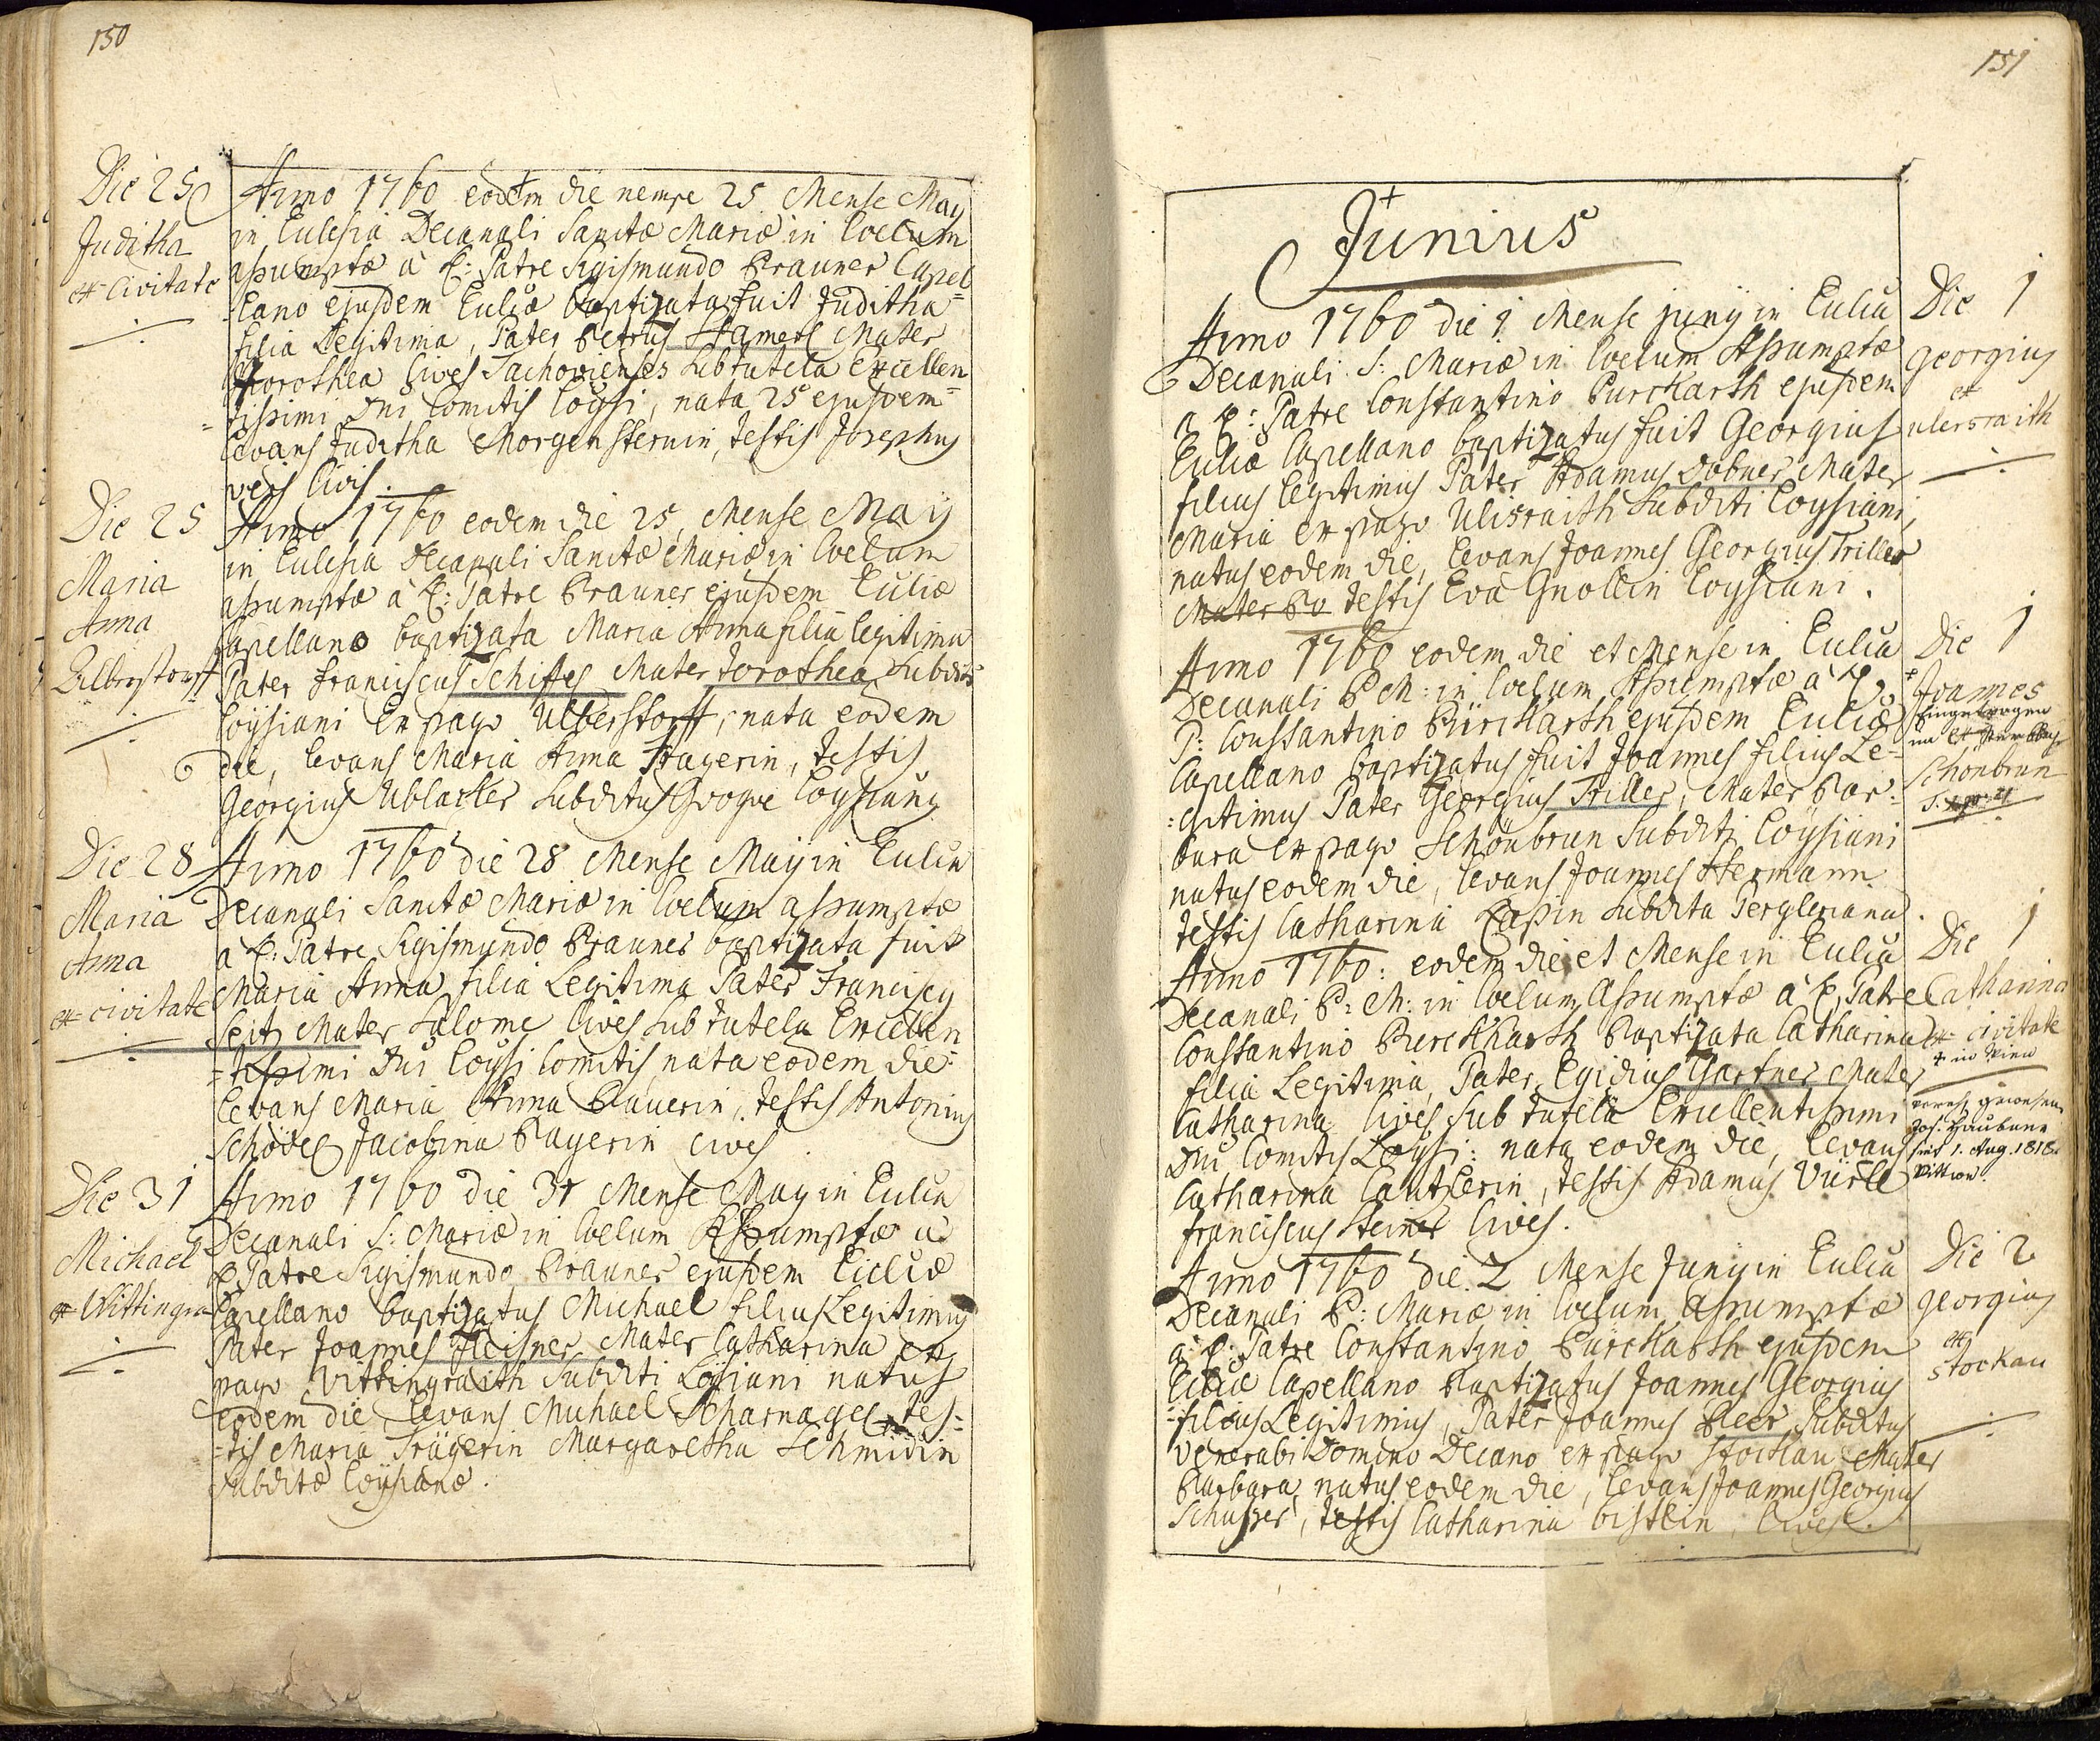 150
Die 25
Juditha
ex Civitate
Anno 1760 eodem die nempe 25 Mense May
in Ecclesia Decanali Sanctæ Mariæ in Coelum
assumptæ à P: Patre Sigismundo Brauner Capel
=lano ejusdem Ecliæ baptizata fuit Juditha
filia Legitima, Pater Petrus Hamerl Mater
Dorothea Cives Tachovienses sub tutela Excellen
=tissimi Dni Comitis Loysi, nata 25 ejusdem
Levans Juditha Morgensternin, testis Josephus
veis Civis.
Die 25
Maria
Anna
Ulberstorff
Anno 1760 eodem die 25 Mense May
in Ecclesia Decanali Sanctæ Mariæ in Coelum
assumptæ à P: Patre Brauner ejusdem Ecliæ
Capellano baptizata Maria Anna filia legitima
Pater Franciscus Schiffes Mater Dorothea subditi
Loysiani Ex pago Ulberstorff, nata eodem
die, Levans Maria Anna Hagerin, testis
Georgius Ublacker subditus Loysiany
Die 28
Maria
Anna
ex civitate
Anno 1760 die 28 Mense May in Eclia
Decanali Sanctæ Mariæ in Coelum assumptæ
a P: Patre Sigismundo Brauner baptizata fuit
Maria Anna filia Legitima Pater Franciscy
Seitz Mater Salome Cives sub tutela Excellen
=tissimi Dni Loysi Comitis nata eodem die
Levans Maria Anna Bauerin, testis Antonius
Schödel Jacobina Bagerin cives
Die 31
Michael
ex Wittingra
Anno 1760 die 31 Mense May in Eclia
Decanali S: Mariæ in Coelum Assumptæ a
P. Patre Sigismundo Brauner ejusdem Ecliæ
Capellano baptizatus Michael filius Legitimus
Pater Joannes Fleisner Mater Catharina ex
pago Vittingraith subditi Loysiani natus
eodem die, Levans Michael Scharnagel tes=
=tis Maria Trägerin Margaretha Schmidin
subditæ Loysianæ.
151
Junius
Anno 1760 die 1 Mense Juny in Eclia
Decanali S: Mariæ in Coelum Assumptæ
a P: Patre Constantino Burckharth ejusdem
Ecliæ Capellano baptizatus fuit Georgius
filius legitimus Pater Adamus Dobner Mater
Maria ex pago Ulisraith subditi Loysiani,
natus eodem die, Levans Joannes Georgius Triller
Mater Ba testis Eva Gnollin Loysiani.
Die 1
Georgius
ex
ulersraith
Anno 1760 eodem die et Mense in Eclia
Decanali B M: in Coelum Assumptæ à P:
P: Constantino Bürckharth ejusdem Ecliæ
Capellano baptizatus fuit Joannes filius Le=
=gitimus Pater Georgius Hiller, Mater Bar=
bara ex pago Schönbrun Subditi Loysiani
natus eodem die, Levans Joannes Hermann
testis Catharina Lassin subdita Perglerianа.
Die 1
Joannes
Eingetragen
Schönbrun
Anno 1760: eodem die et Mense in Eclia
Decanali B: M: in Coelum Assumptæ à P. Patre
Constantino Burckharth Baptizata Catharina
filia Legitima, Pater Egidius Gartner Mater
Catharina Cives sub tutela Excellentissimi
Dni Comitis Loysi: nata eodem die, Levans
Catharina Cantzlerin, testis Adamus Vürtl
Franciscus Steiner Cives.
Die 1
Catharina
ex civitate
+ in Wien
gewesene
Jos. Haubner
seit 1. Aug. 1818
Wittwe
Anno 1760 die 2 Mense Juny in Eclia
Decanali B: Mariæ in Coelum Assumptæ
a P: Patre Constantino Burckharth ejusdem
Ecliæ Capellano Baptizatus Joannes Georgius
=filius Legitimus, Pater Joannes Beer Subditus
Venerabi Domino Decano ex pago Stockau Mater
Barbara natus eodem die, Levans Joannes Georgius
Schusser, testis Catharina Cives.
Die 2
Georgius
ex
Stockau